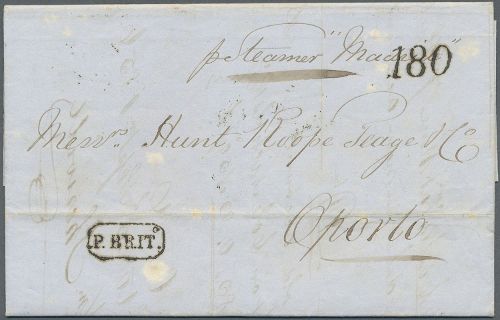 p Steamer "Madrid"
180
Messrs. Hunt Roope Teage & Co
Oporto
P. BRITº.